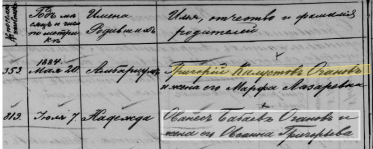 Годъ мѣ
сяцъ и число
по метри
кѣ
Имена
Родившихъ
Имя, отчество и фамилія
родителей
353
1884
Мая 20
Амбарцумъ
Григорій Калустовъ Огановъ
и жена его Марфа Лазаревна
813.
Іюль 7
Надежда
Ованесъ Бабаевъ Огановъ и
жена его Оганна Григорьева